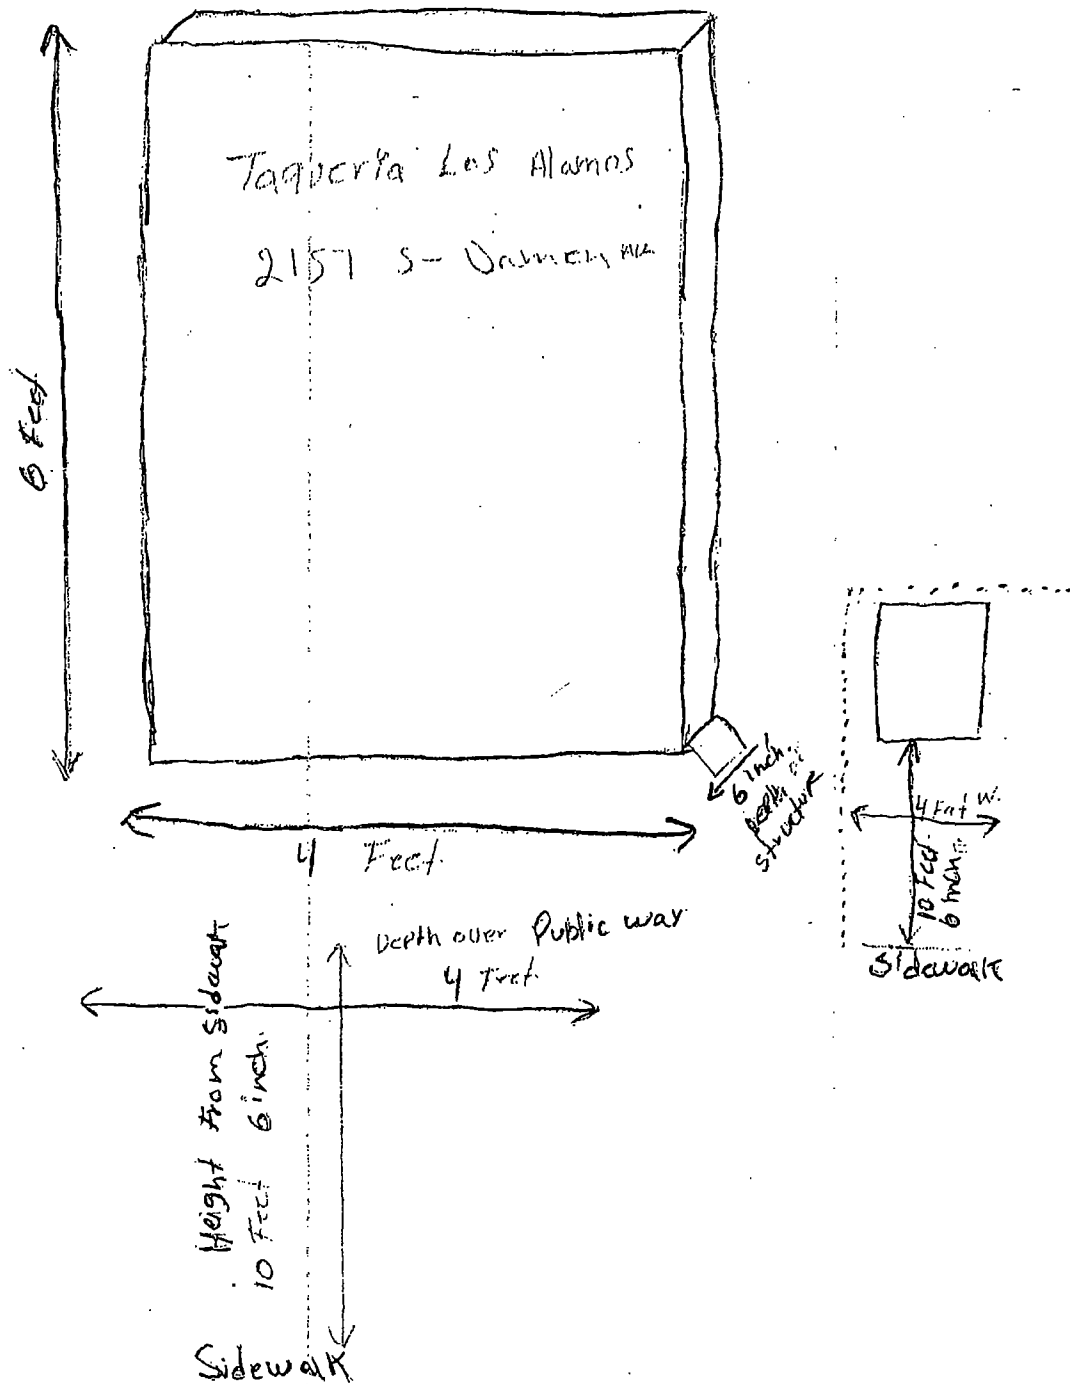 Taqueria Los Alamos
2157 S- Damen Ave
6 Feet
4 Feet
6 inch.
Depth of
structure
Depth over Public way
4 Feet
Height From Sidewalk
10 Feet 6 inch.
Sidewalk
4 Feet W.
10 Feet
6 inch
Sidewalk